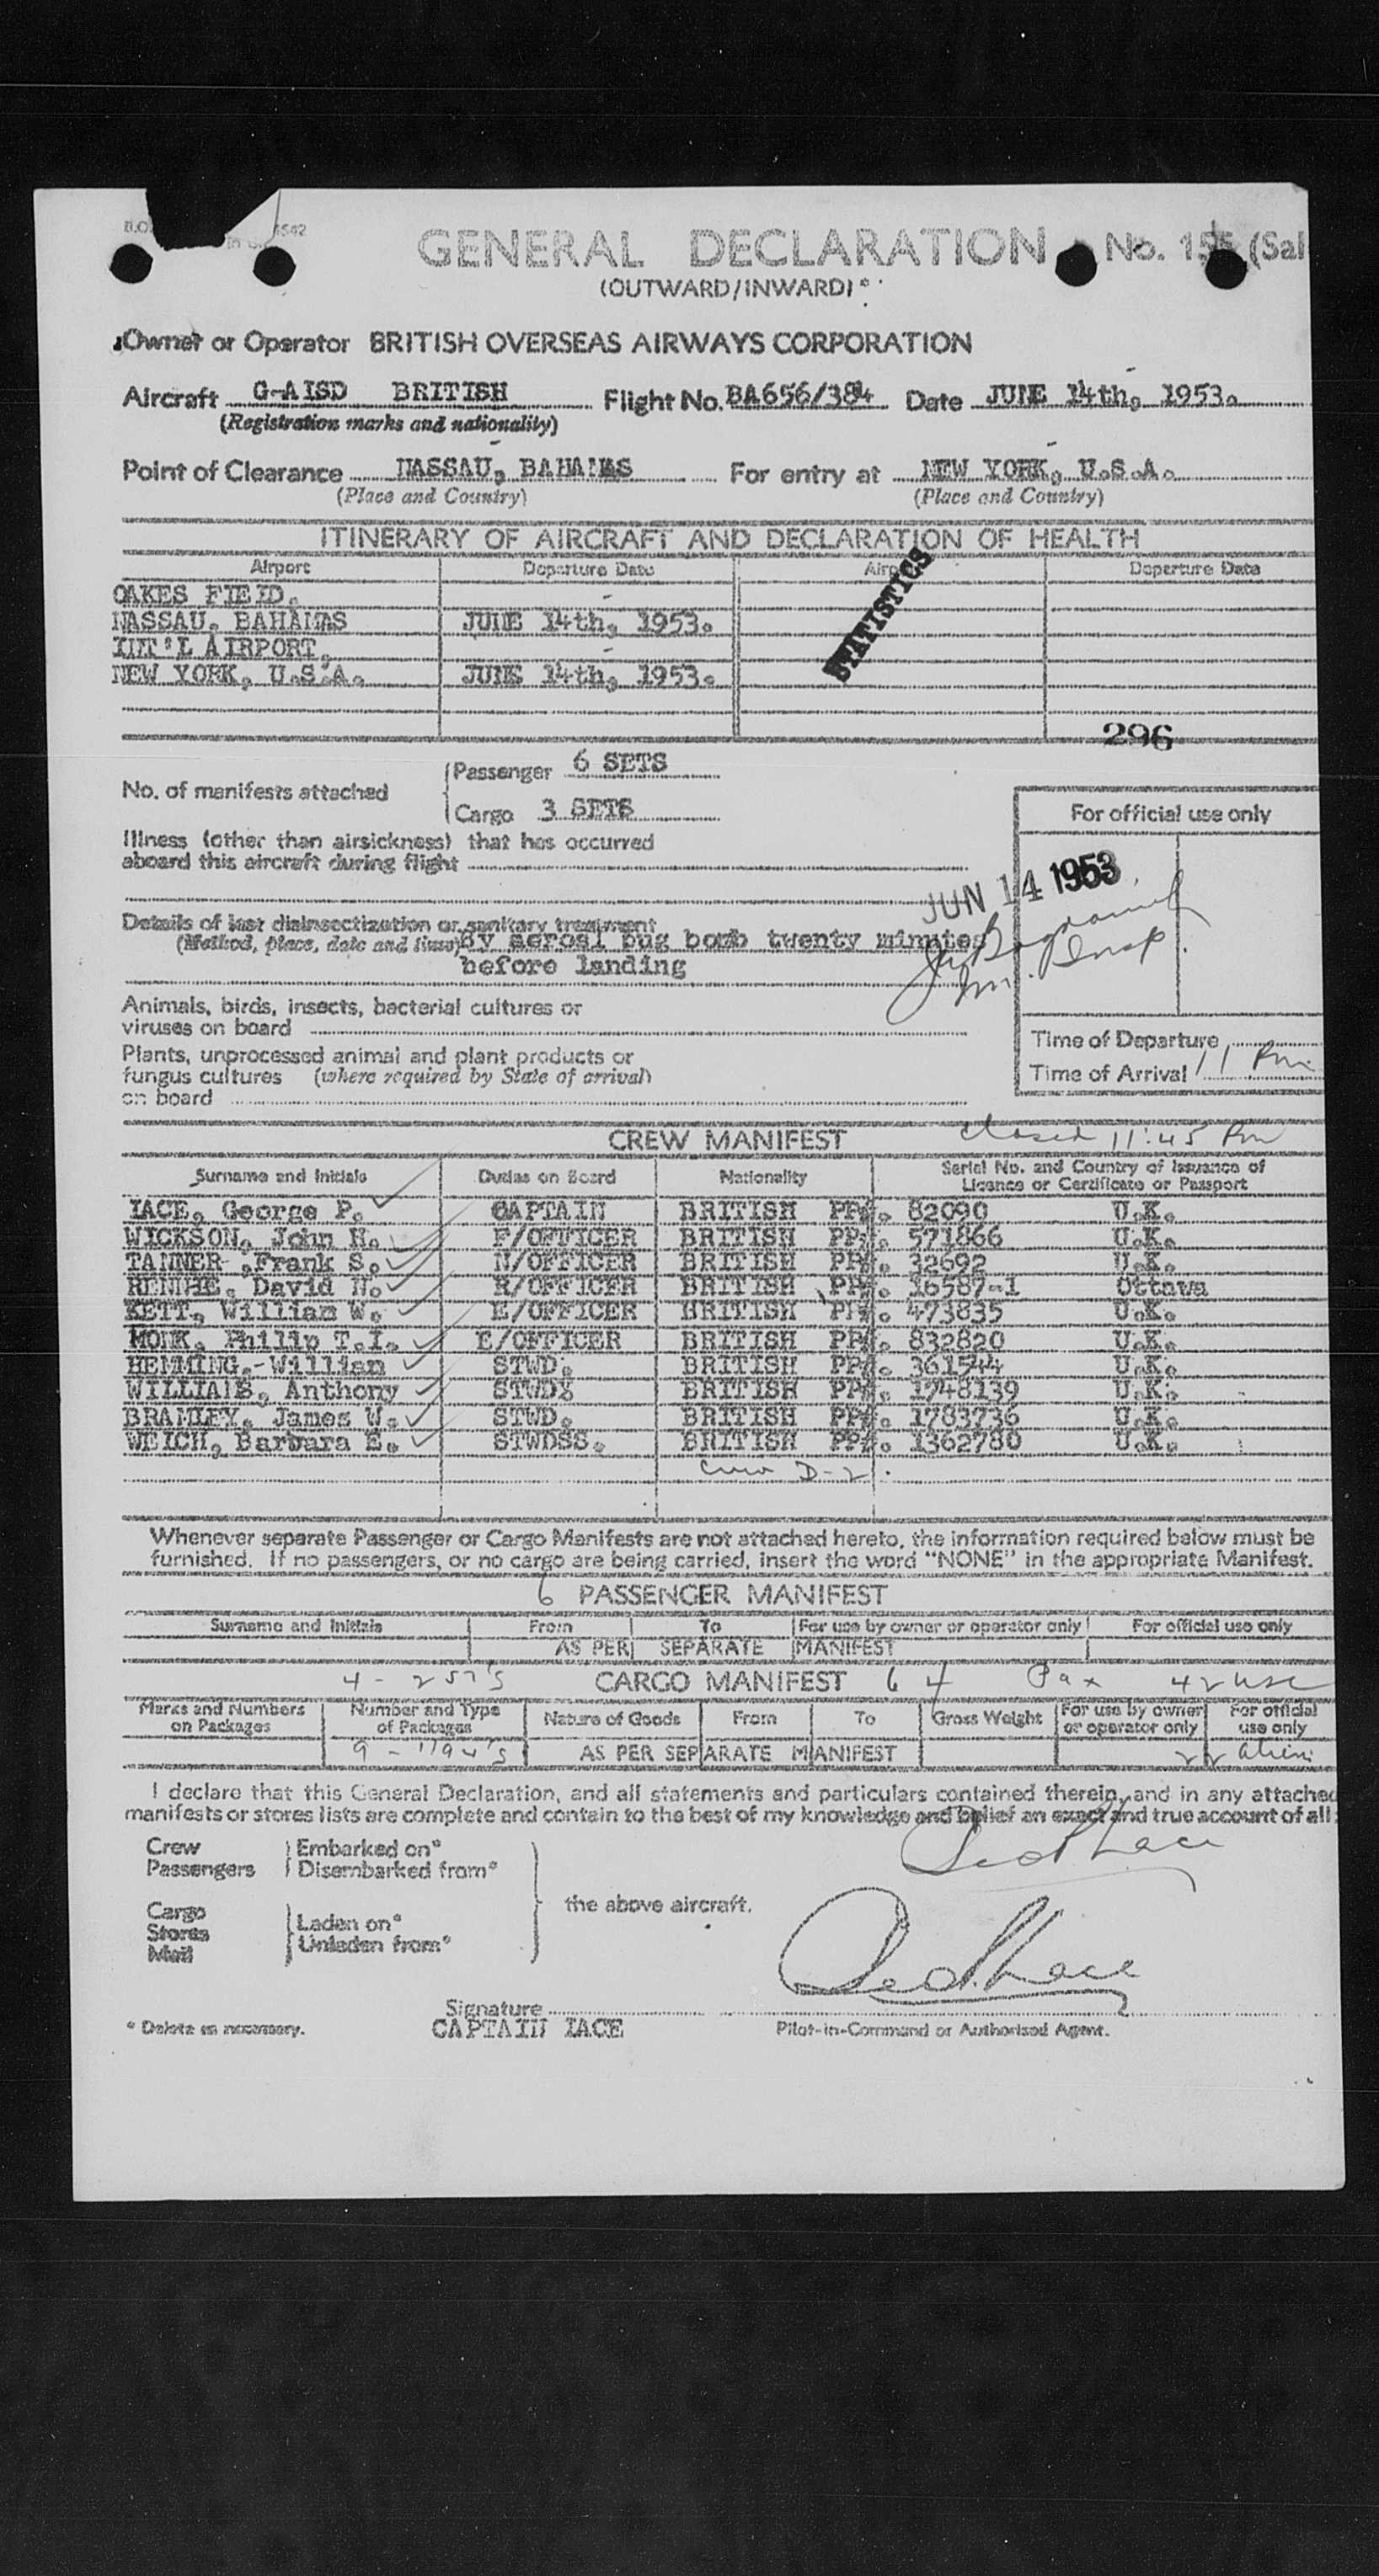 GENERAL DECLARATION No. 155 (Sal
(OUTWARD/INWARD)*
Owner or Operator BRITISH OVERSEAS AIRWAYS CORPORATION
Aircraft G-AISD BRITISH Flight No. BA656/384 Date JUNE 14th, 1953.
(Registration marks and nationality)
Point of Clearance NASSAU, BAHAMAS For entry at NEW YORK, U.S.A.
(Place and Country) (Place and Country)
ITINERARY OF AIRCRAFT AND DECLARATION OF HEALTH
Airport Departure Date Airport Departure Date
OAKES FIELD.
NASSAU, BAHAMAS JUNE 14th, 1953.
INT'L AIRPORT.
NEW YORK, U.S.A. JUNE 14th, 1953.
STATISTICS
296
No. of manifests attached
Passenger 6 SETS
Cargo 3 SETS
For official use only
Illness (other than airsickness) that has occurred
aboard this aircraft during flight
JUN 14 1953
Details of last disinsectization or sanitary treatment
(Method, place, date and time) By aerosl bug bomb twenty minutes
before landing
Im. Insp.
Animals, birds, insects, bacterial cultures or
viruses on board
Plants, unprocessed animal and plant products or
fungus cultures (where required by State of arrival)
on board
Time of Departure
Time of Arrival 11 Pm
closed 11:45 Pm
CREW MANIFEST
Surname and Initials Duties on Board Nationality Serial No. and Country of Issuance of
Licence or Certificate or Passport
LACE, George P. CAPTAIN BRITISH PP#. 82090 U.K.
WICKSON, John H. F/OFFICER BRITISH PP#. 571866 U.K.
TANNER ,Frank S. N/OFFICER BRITISH PP#. 32692 U.K.
RENNIE, David N. R/OFFICER BRITISH PP#. 16587-1 Ottawa
KETT, William W. E/OFFICER BRITISH PP#. 473835 U.K.
MONK, Philip T.I. E/OFFICER BRITISH PP#. 832820 U.K.
HEMMING,-William STWD. BRITISH PP#. 361544 U.K.
WILLIAMS, Anthony STWD. BRITISH PP#. 1748139 U.K.
BRAMLEY, James W. STWD. BRITISH PP#. 1783736 U.K.
WELCH, Barbara E. STWDSS. BRITISH PP#. 1362780 U.K.
Crew D-2
Whenever separate Passenger or Cargo Manifests are not attached hereto, the information required below must be
furnished. If no passengers, or no cargo are being carried, insert the word "NONE" in the appropriate Manifest.
6 PASSENGER MANIFEST
Surname and Initials From To For use by owner or operator only For official use only
AS PER SEPARATE MANIFEST
4 - 257's CARGO MANIFEST 64 Pax 42 usc
Marks and Numbers Number and Type Nature of Goods From To Gross Weight For use by owner For official
on Packages of Packages or operator only use only
9 - I 94's AS PER SEPARATE MANIFEST 22 alien
I declare that this General Declaration, and all statements and particulars contained therein, and in any attached
manifests or stores lists are complete and contain to the best of my knowledge and belief an exact and true account of all
Crew Embarked on*
Passengers Disembarked from*
the above aircraft.
Cargo
Stores Laden on*
Mail Unladen from*
Signature
* Delete as necessary. CAPTAIN LACE Pilot-in-Command or Authorised Agent.